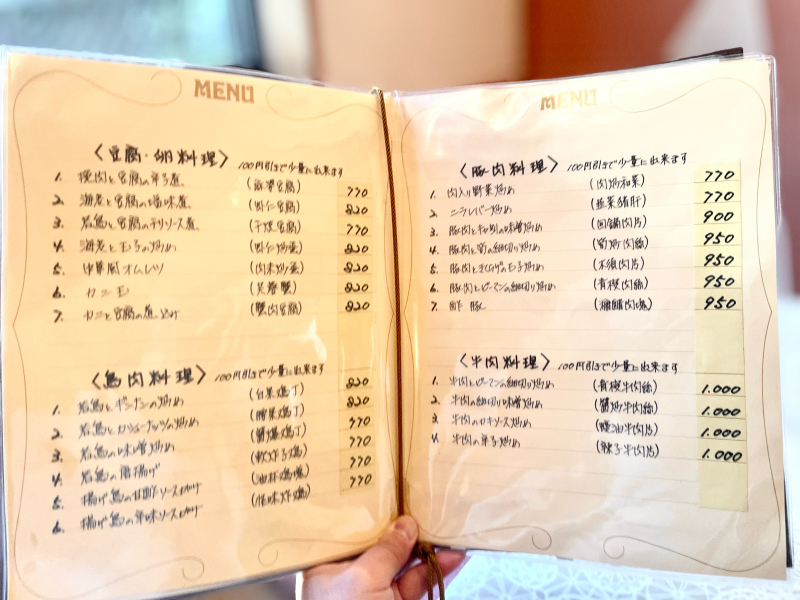 MENU
〈豆腐・卵料理〉 100円引きで少量に出来ます
1. 挽肉と豆腐の辛子煮 (麻婆豆腐) 770
2. 海老と豆腐の塩味煮 (蝦仁豆腐) 820
3. 若鳥と豆腐のチリソース煮 (干焼豆腐) 770
4. 海老と玉子の炒め (蝦仁炒蛋) 820
5. 中華風オムレツ (肉末炒蛋) 820
6. カニ玉 (芙蓉蟹) 820
7. カニと豆腐の煮込み (蟹肉豆腐) 820
〈鳥肉料理〉 100円引きで少量に出来ます
1. 若鳥とギンナンの炒め (白果鶏丁) 820
2. 若鳥とカシューナッツの炒め (腰果鶏丁) 820
3. 若鳥の味噌炒め (醤爆鶏丁) 770
4. 若鳥の唐揚げ (軟炸子鶏) 770
5. 揚げ鳥の甘酢ソースかけ (油淋鶏塊) 770
6. 揚げ鳥の辛味ソースかけ (怪味炸鶏) 770
MENU
〈豚肉料理〉 100円引きで少量に出来ます
1. 肉入り野菜炒め (肉炒和菜) 770
2. ニラレバー炒め (韮菜猪肝) 770
3. 豚肉とキャベツの味噌炒め (回鍋肉片) 900
4. 豚肉と筍の細切り炒め (筍炒肉絲) 950
5. 豚肉ときくらげの玉子炒め (木須肉片) 950
6. 豚肉とピーマンの細切り炒め (青椒肉絲) 950
7. 酢豚 (咕咾肉塊) 950
〈牛肉料理〉 100円引きで少量に出来ます
1. 牛肉とピーマンの細切り炒め (青椒牛肉絲) 1.000
2. 牛肉の細切り味噌炒め (醤炒牛肉絲) 1.000
3. 牛肉のカキソース炒め (蠔油牛肉片) 1.000
4. 牛肉の辛子炒め (辣子牛肉片) 1.000